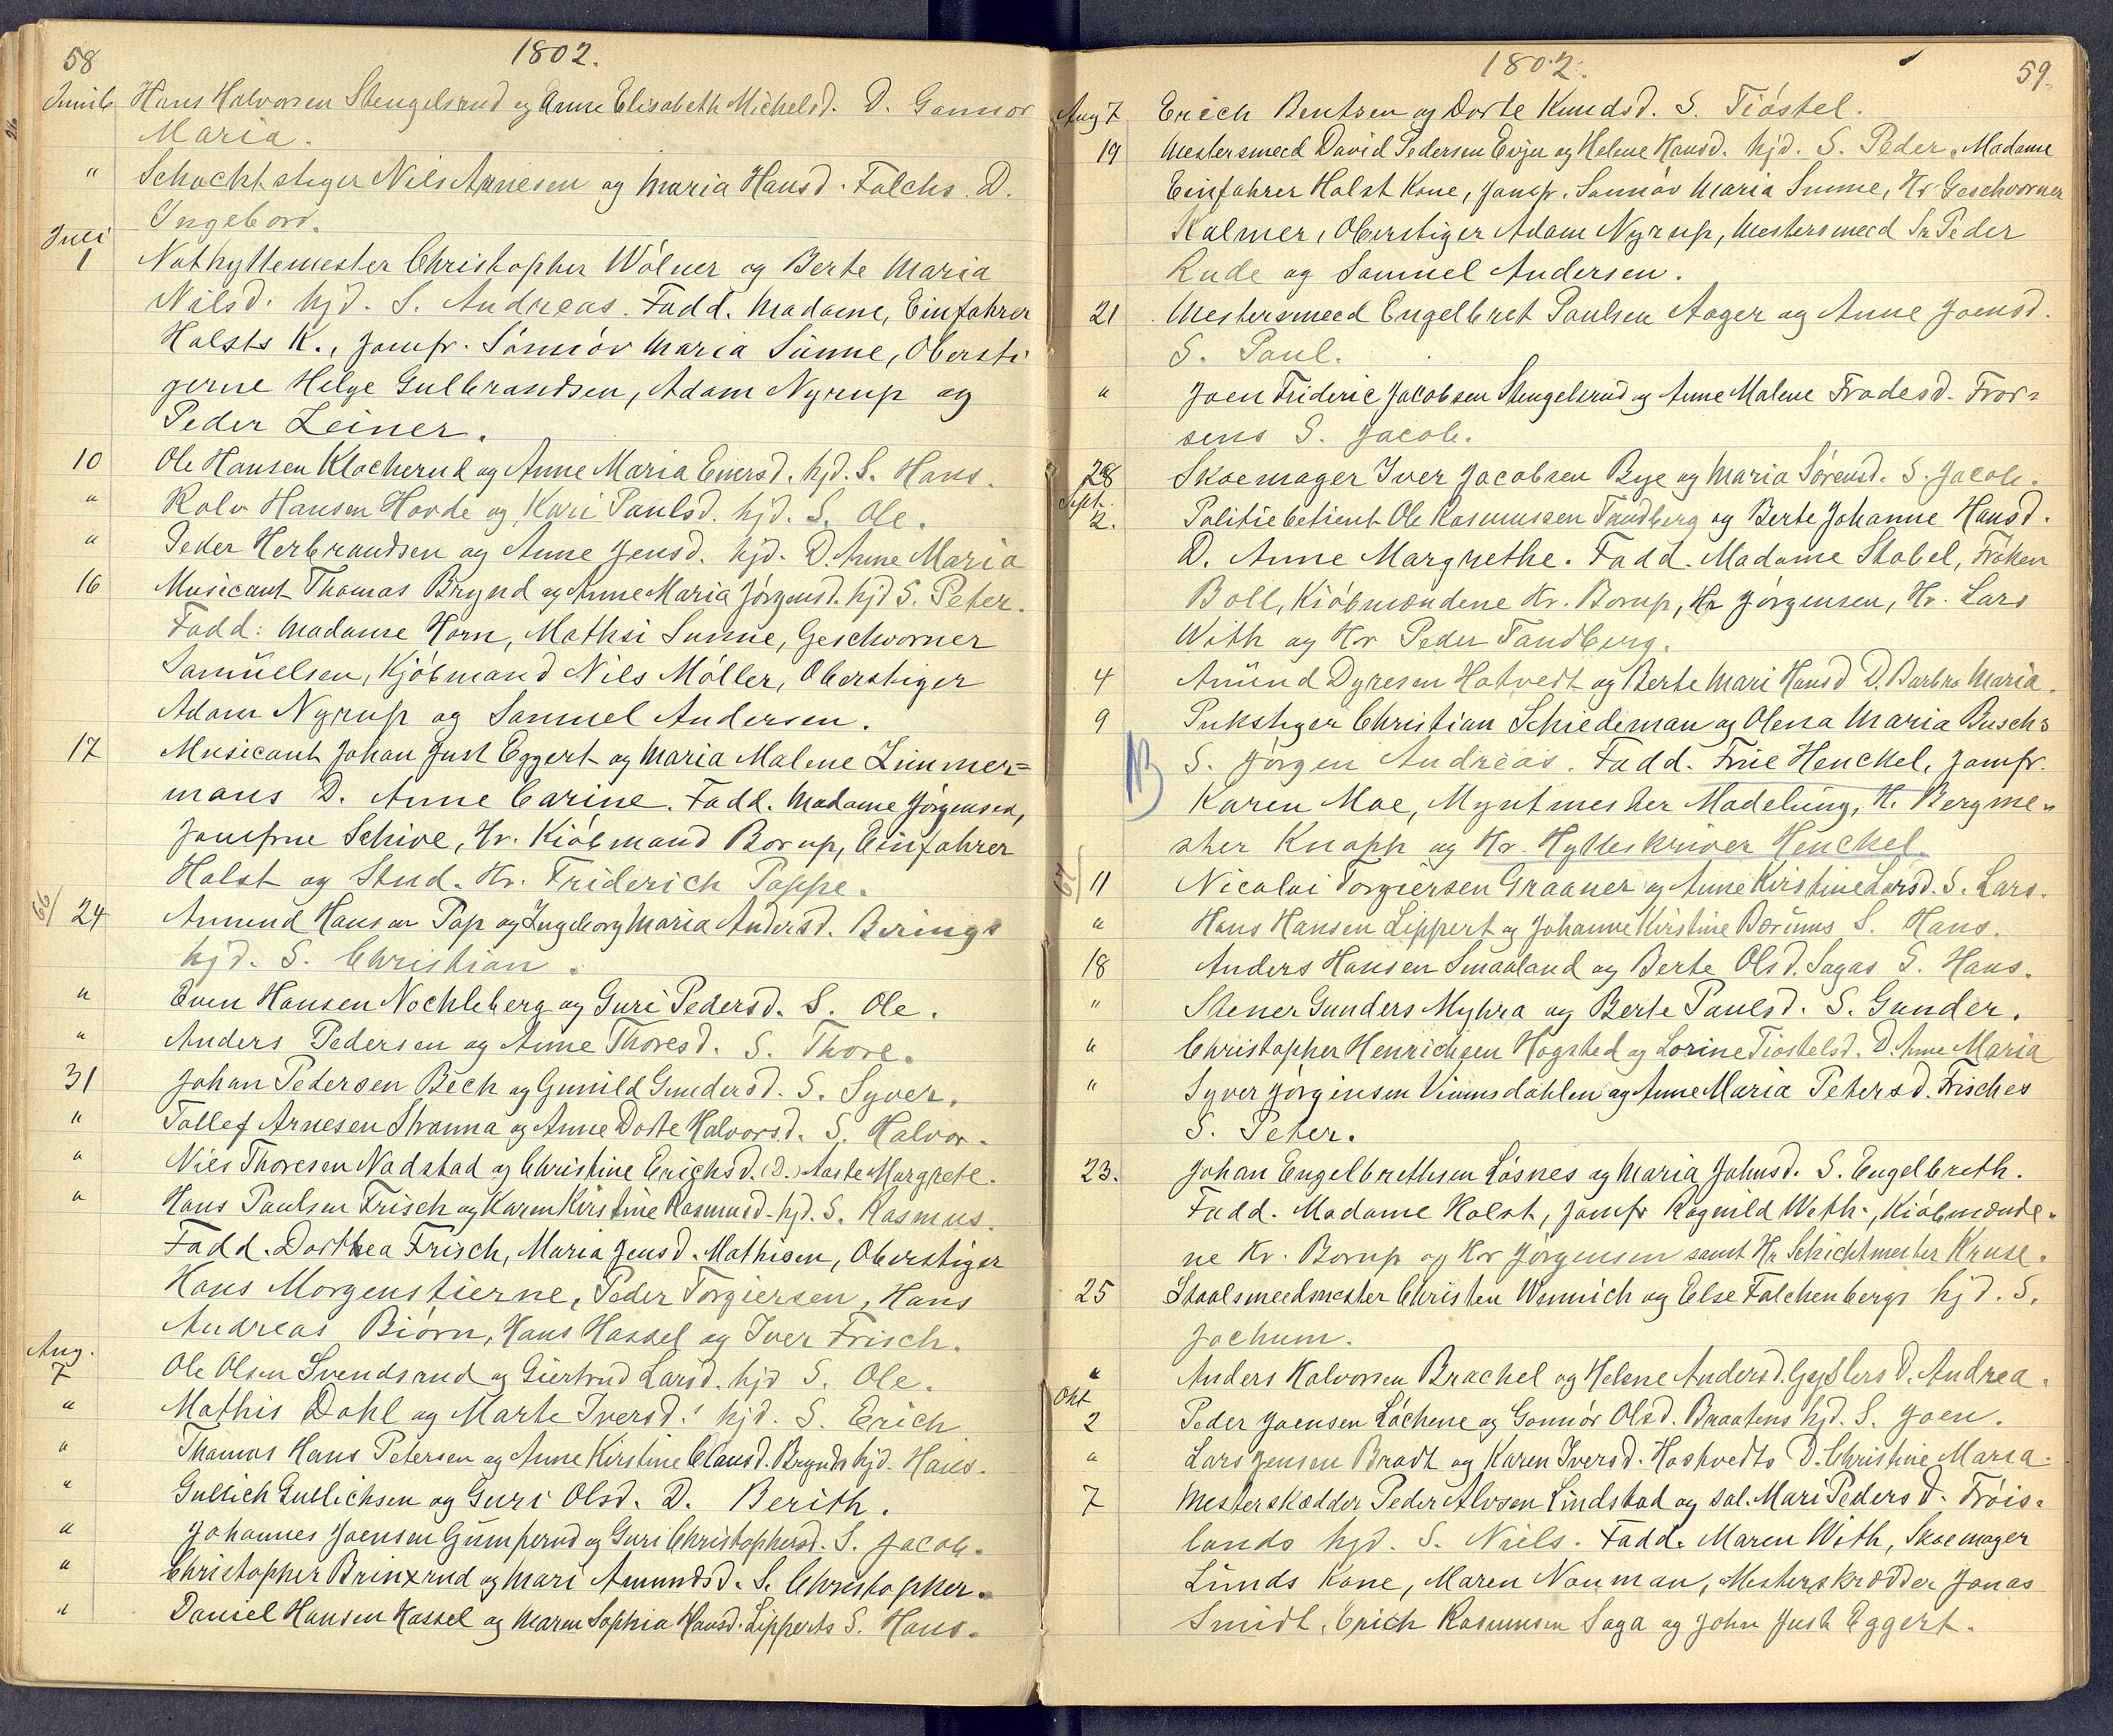 58
1802.
Junib Hans Halvorsen Stengelsrud og Anne Elisabeth Michelsd. D. Gunnor
26 Maria.
" Schachtstiger Nils Arnesen og Maria Hansd. Falchs. D.
Ingebord.
Juli
1 Nathyttemester Christopher Wölner og Berte Maria
Nilsd. hjd. S. Andreas. Fadd. Madame, Einfahrer
Holsts K., Jomfr. Sönnöv Maria Sünne, Obersti
gerne Helge Gulbrandsen, Adam Nyrup og
Peder Leiner.
10 Ole Hansen Klocherud og Anne Maria Enersd. hjd. S. Hans.
" Rolv Hansen Hovde og Kari Paulsd. hjd. S. Ole.
" Peder Herbrandsen og Anne Jensd. hjd. D. Anne Maria
16 Musicant Thomas Brynd og Anne Maria Jörgensd. hjd S. Peter.
Fadd: Madame Horn, Mathsi Sunne, Geschvorner
Samüelsen, Kjöbmand Nils Möller, Oberstiger
Adam Nyrup og Samuel Andersen.
17 Musicant Johan Just Eggert og Maria Malene Zimmer=
mans D. Anne Carine. Fadd. Madame Jörgensen,
Jomfrue Schive, Hr. Kiöbmand Borup, Einfahrer
Holst og Stud. Hr. Friderich Poppe.
66/ 24 Amund Hansen Pap og Ingeborg Maria Andersd. Berings
hjd. S. Christian.
" Even Hansen Nochleberg og Guri Pedersd. S. Ole.
" Anders Pedersen og Anne Thoresd. S. Thore.
31 Johan Pedersen Bech og Gunild Gundersd. S. Syver.
" Tollef Arnesen Stranna og Anne Dorte Halvorsd. S. Halvor.
" Niels Thoresen Nadstad og Christine Erichsd. (D.) Aaste Margrete.
" Hans Paulsen Frisch og Karen Kirstine Rasmusd. hjd. S. Rasmus.
Fadd. Dorthea Frisch, Maria Jensd. Mathisen, Oberstiger
Hans Morgenstierne, Peder Torgiersen, Hans
Andreas Biörn, Hans Hassel og Iver Frisch.
Aug.
7 Ole Olsen Svendsrud og Giertrud Larsd. hjd S. Ole.
" Mathis Dahl og Marte Iversd. hjd. S. Erich
" Thomas Hans Petersen og Anne Kirstine Clausd. Brynds hjd. Hans.
" Gullich Gullichsen og Guri Olsd. D. Berith.
" Johannes Joensen Gumperud og Guri Christophersd. S. Jacob.
" Christopher Brinxrud og Mari Amundsd. S. Christopher.
" Daniel Hansen Hassel og Maren Sophia Hansd. Lipperts S. Hans.
1802.
59.
Aug 7 Erich Bentsen og Dorte Knudsd. S. Tiöstel.
19 Mestersmed David Pedersen Evju og Helene Hansd. hjd. S. Peder. Madame
Einfahrer Holst Kone, Jomfr. Sannöv Maria Sunne, Hr Geschvorner
Kalmer, Oberstiger Adam Nyrup, Mestersmed Sr Peder
Rude og Samuel Andersen.
21 Mestersmed Engelbret Paulsen Aager og Anne Joensd.
S. Paul.
" Joen Frideric Jacobsen Stengelsrud og Anne Malene Fradesd. Fror=
sens S. Jacob.
28 Skoemager Iver Jacobsen Bye og Maria Sörensd. S. Jacob.
Sept.
2. Politiebetient Ole Rasmussen Tandberg og Berte Johanne Hansd.
D. Anne Margrethe. Fadd. Madame Stabel, Fröken
Boll, Kiöbmændene Hr. Borup, Hr Jörgensen, Hr. Lars
With og Hr Peder Tandberg.
4 Amünd Dyresen Hotvedt og Berte Mari Hansd D. Barbra Maria.
9 Pukstiger Christian Schiedeman og Olena Maria Buschs
NB S. Jörgen Andreas. Fadd. Frue Henckel, Jomfr.
Karen Moe, Myntmester Madelung, H. Bergme=
ster Knapp og Hr. Hytteskriver Henckel.
67/ 11 Nicolai Torgiersen Graaner og Anne Kirstine Larsd. S. Lars.
" Hans Hansen Lippert og Johanne Kirstine Bærums S. Hans.
18 Anders Hansen Smaaland og Berte Olsd. Sagas S. Hans.
" Stener Gunders Myhra og Berte Paulsd. S. Gunder.
" Christopher Henrichsen Hogstad og Lorine Tiostelsd. D. Anne Maria
" Syver Jörgensen Vinnsdahlen og Anne Maria Petersd. Frisches
S. Peter.
23. Johan Engelbrethsen Lösnes og Maria Johnsd. S. Engelbreth.
Fadd. Madame Holst, Jomfr Ragnild With., Kiöbmænde=
ne Hr. Borup og Hr Jörgensen samt Hr Schichtmester Kruse.
25 Staalsmedmester Christen Wennich og Else Falchenbergs hjd. S.
Jochum.
" Anders Halvorsen Brachel og Helene Andersd. Gyslers D. Andrea.
Okt
2 Peder Joensen Löchene og Gonnör Olsd. Braatens hjd. S. Joen.
" Lars Jensen Bradt og Karen Iversd. Hostvedts D. Christine Maria.
7 Mesterskædder Peder Alvsen Lindstad og sal. Mari Pedersd. Fröis=
lands hjd. S. Niels. Fadd. Maren With, Skoemager
Lunds Kone, Maren Nouman, Mesterskrædder Jonas
Smidt, Erich Rasmusen Saga og John Just Eggert.